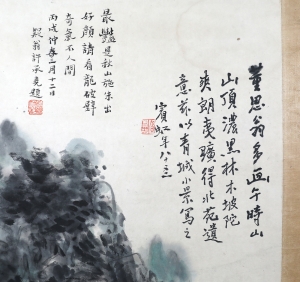 董思翁多画午時山
山頂濃黑林木坡陀
爽朗夷曠得北苑遺
意茲以青城小景寫之
賓虹年八十三
最豔是秋山施朱出
好顏請看龍破壁
奇氣不人間
丙戌仲冬三月十二日
疑翁許承堯題